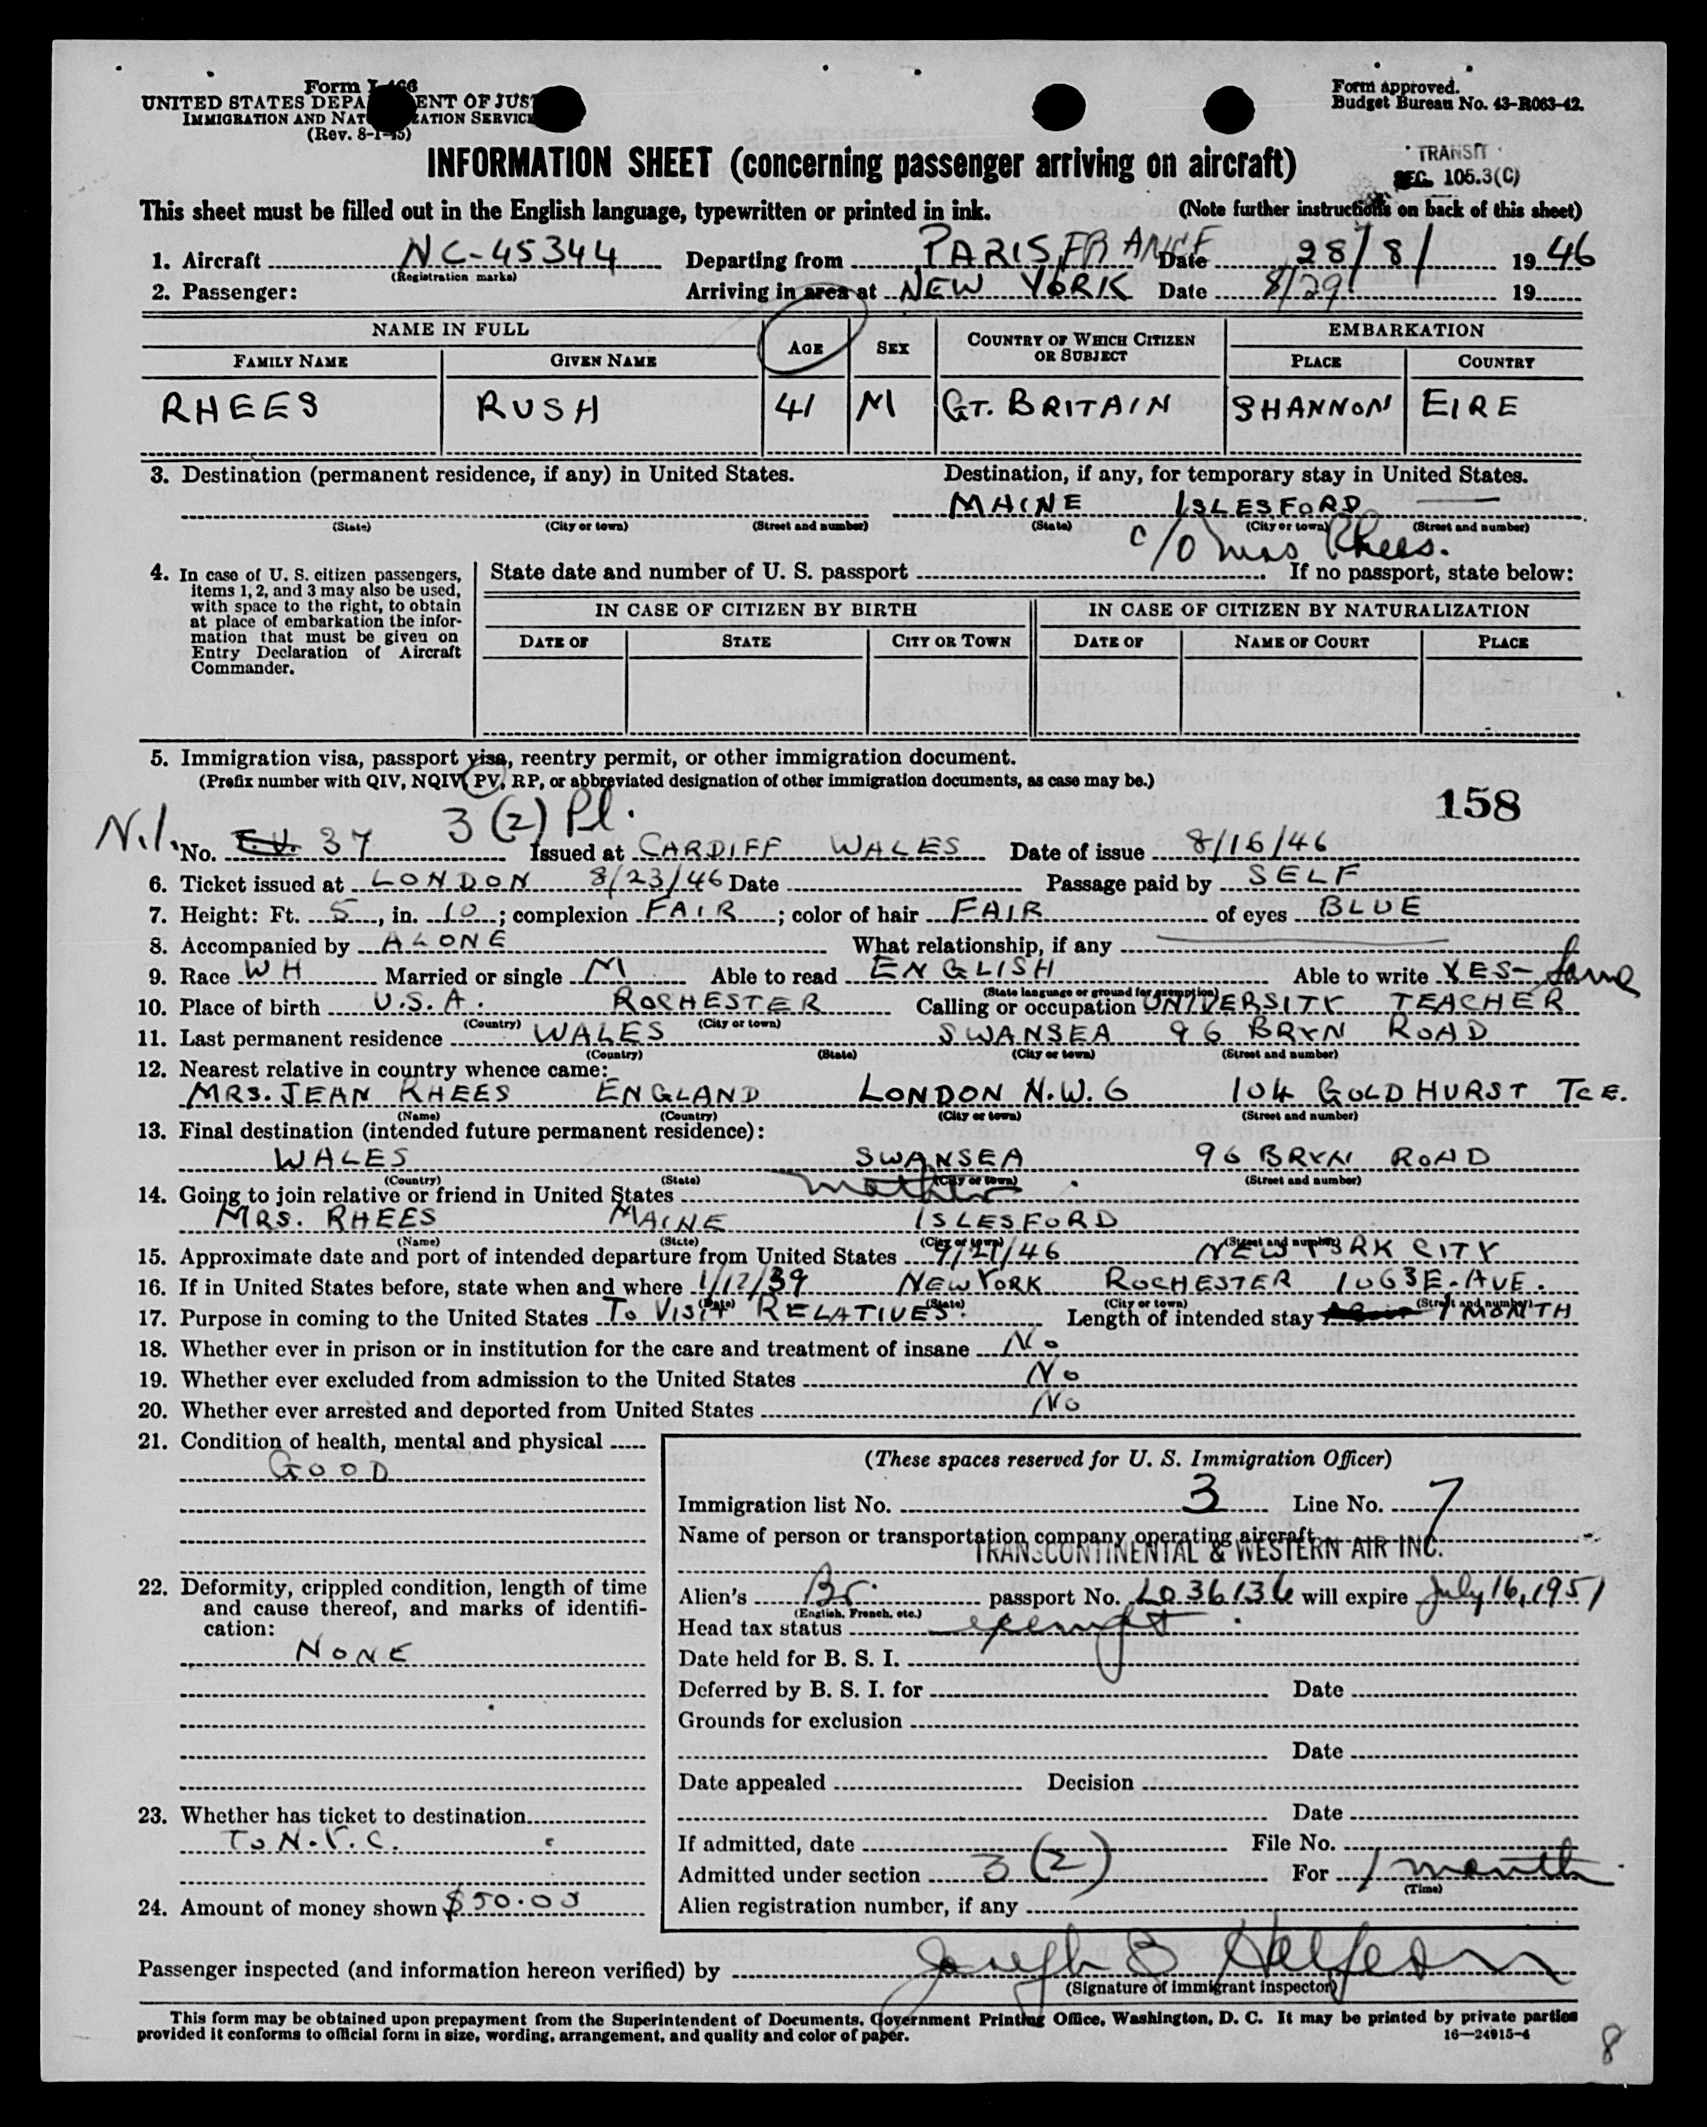 Form I-466
UNITED STATES DEPARTMENT OF JUSTICE
IMMIGRATION AND NATURALIZATION SERVICE
(Rev. 8-1-45)
Form approved.
Budget Bureau No. 43-R063-42.
TRANSIT
SEC. 106.3(C)
INFORMATION SHEET (concerning passenger arriving on aircraft)
This sheet must be filled out in the English language, typewritten or printed in ink. (Note further instructions on back of this sheet)
1. Aircraft NC-45344 Departing from PARIS FRANCE Date 28/8/ 1946
(Registration marks)
2. Passenger: Arriving in area at NEW YORK Date 8/29 19
NAME IN FULL AGE SEX COUNTRY OF WHICH CITIZEN OR SUBJECT EMBARKATION
FAMILY NAME GIVEN NAME PLACE COUNTRY
RHEES RUSH 41 M GT. BRITAIN SHANNON EIRE
3. Destination (permanent residence, if any) in United States. Destination, if any, for temporary stay in United States.
MAINE ISLESFORD —
(State) (City or town) (Street and number) (State) (City or town) (Street and number)
c/o Mrs Rhees.
4. In case of U. S. citizen passengers, items 1, 2, and 3 may also be used, with space to the right, to obtain at place of embarkation the information that must be given on Entry Declaration of Aircraft Commander.
State date and number of U. S. passport . If no passport, state below:
IN CASE OF CITIZEN BY BIRTH IN CASE OF CITIZEN BY NATURALIZATION
DATE OF STATE CITY OR TOWN DATE OF NAME OF COURT PLACE
5. Immigration visa, passport visa, reentry permit, or other immigration document.
(Prefix number with QIV, NQIV, PV, RP, or abbreviated designation of other immigration documents, as case may be.)
158
3 (2) Pl.
N.I. No. T.V. 37 Issued at CARDIFF WALES Date of issue 8/16/46
6. Ticket issued at LONDON 8/23/46 Date Passage paid by SELF
7. Height: Ft. 5, in. 10; complexion FAIR; color of hair FAIR of eyes BLUE
8. Accompanied by ALONE What relationship, if any
9. Race WH Married or single M Able to read ENGLISH Able to write YES- Same
(State language or ground for exemption)
10. Place of birth U.S.A. ROCHESTER Calling or occupation UNIVERSITY TEACHER
(Country) (City or town)
11. Last permanent residence WALES SWANSEA 96 BRYN ROAD
(Country) (State) (City or town) (Street and number)
12. Nearest relative in country whence came:
MRS. JEAN RHEES ENGLAND LONDON N.W.6 104 GOLDHURST TCE.
(Name) (Country) (City or town) (Street and number)
13. Final destination (intended future permanent residence):
WALES SWANSEA 96 BRYN ROAD
(Country) (State) (City or town) (Street and number)
14. Going to join relative or friend in United States mother
MRS. RHEES MAINE ISLESFORD
(Name) (State) (City or town) (Street and number)
15. Approximate date and port of intended departure from United States 9/21/46 NEW YORK CITY
16. If in United States before, state when and where 1/12/39 NEW YORK ROCHESTER 1063 E. AVE.
(Date) (State) (City or town) (Street and number)
17. Purpose in coming to the United States TO VISIT RELATIVES. Length of intended stay 1 MONTH
18. Whether ever in prison or in institution for the care and treatment of insane NO
19. Whether ever excluded from admission to the United States NO
20. Whether ever arrested and deported from United States NO
21. Condition of health, mental and physical
GOOD
22. Deformity, crippled condition, length of time and cause thereof, and marks of identification:
NONE
23. Whether has ticket to destination
TO N.Y.C.
24. Amount of money shown $50.00
(These spaces reserved for U. S. Immigration Officer)
Immigration list No. 3 Line No. 7
Name of person or transportation company operating aircraft
TRANSCONTINENTAL & WESTERN AIR INC.
Alien's Br. passport No. LO36136 will expire July 16, 1951
(English, French, etc.)
Head tax status exempt
Date held for B. S. I.
Deferred by B. S. I. for Date
Grounds for exclusion
Date
Date appealed Decision
Date
If admitted, date File No.
Admitted under section 3 (2) For 1 month
(Time)
Alien registration number, if any
Passenger inspected (and information hereon verified) by Joseph B
(Signature of immigrant inspector)
This form may be obtained upon prepayment from the Superintendent of Documents, Government Printing Office, Washington, D. C. It may be printed by private parties
provided it conforms to official form in size, wording, arrangement, and quality and color of paper. 16—24915-4
8